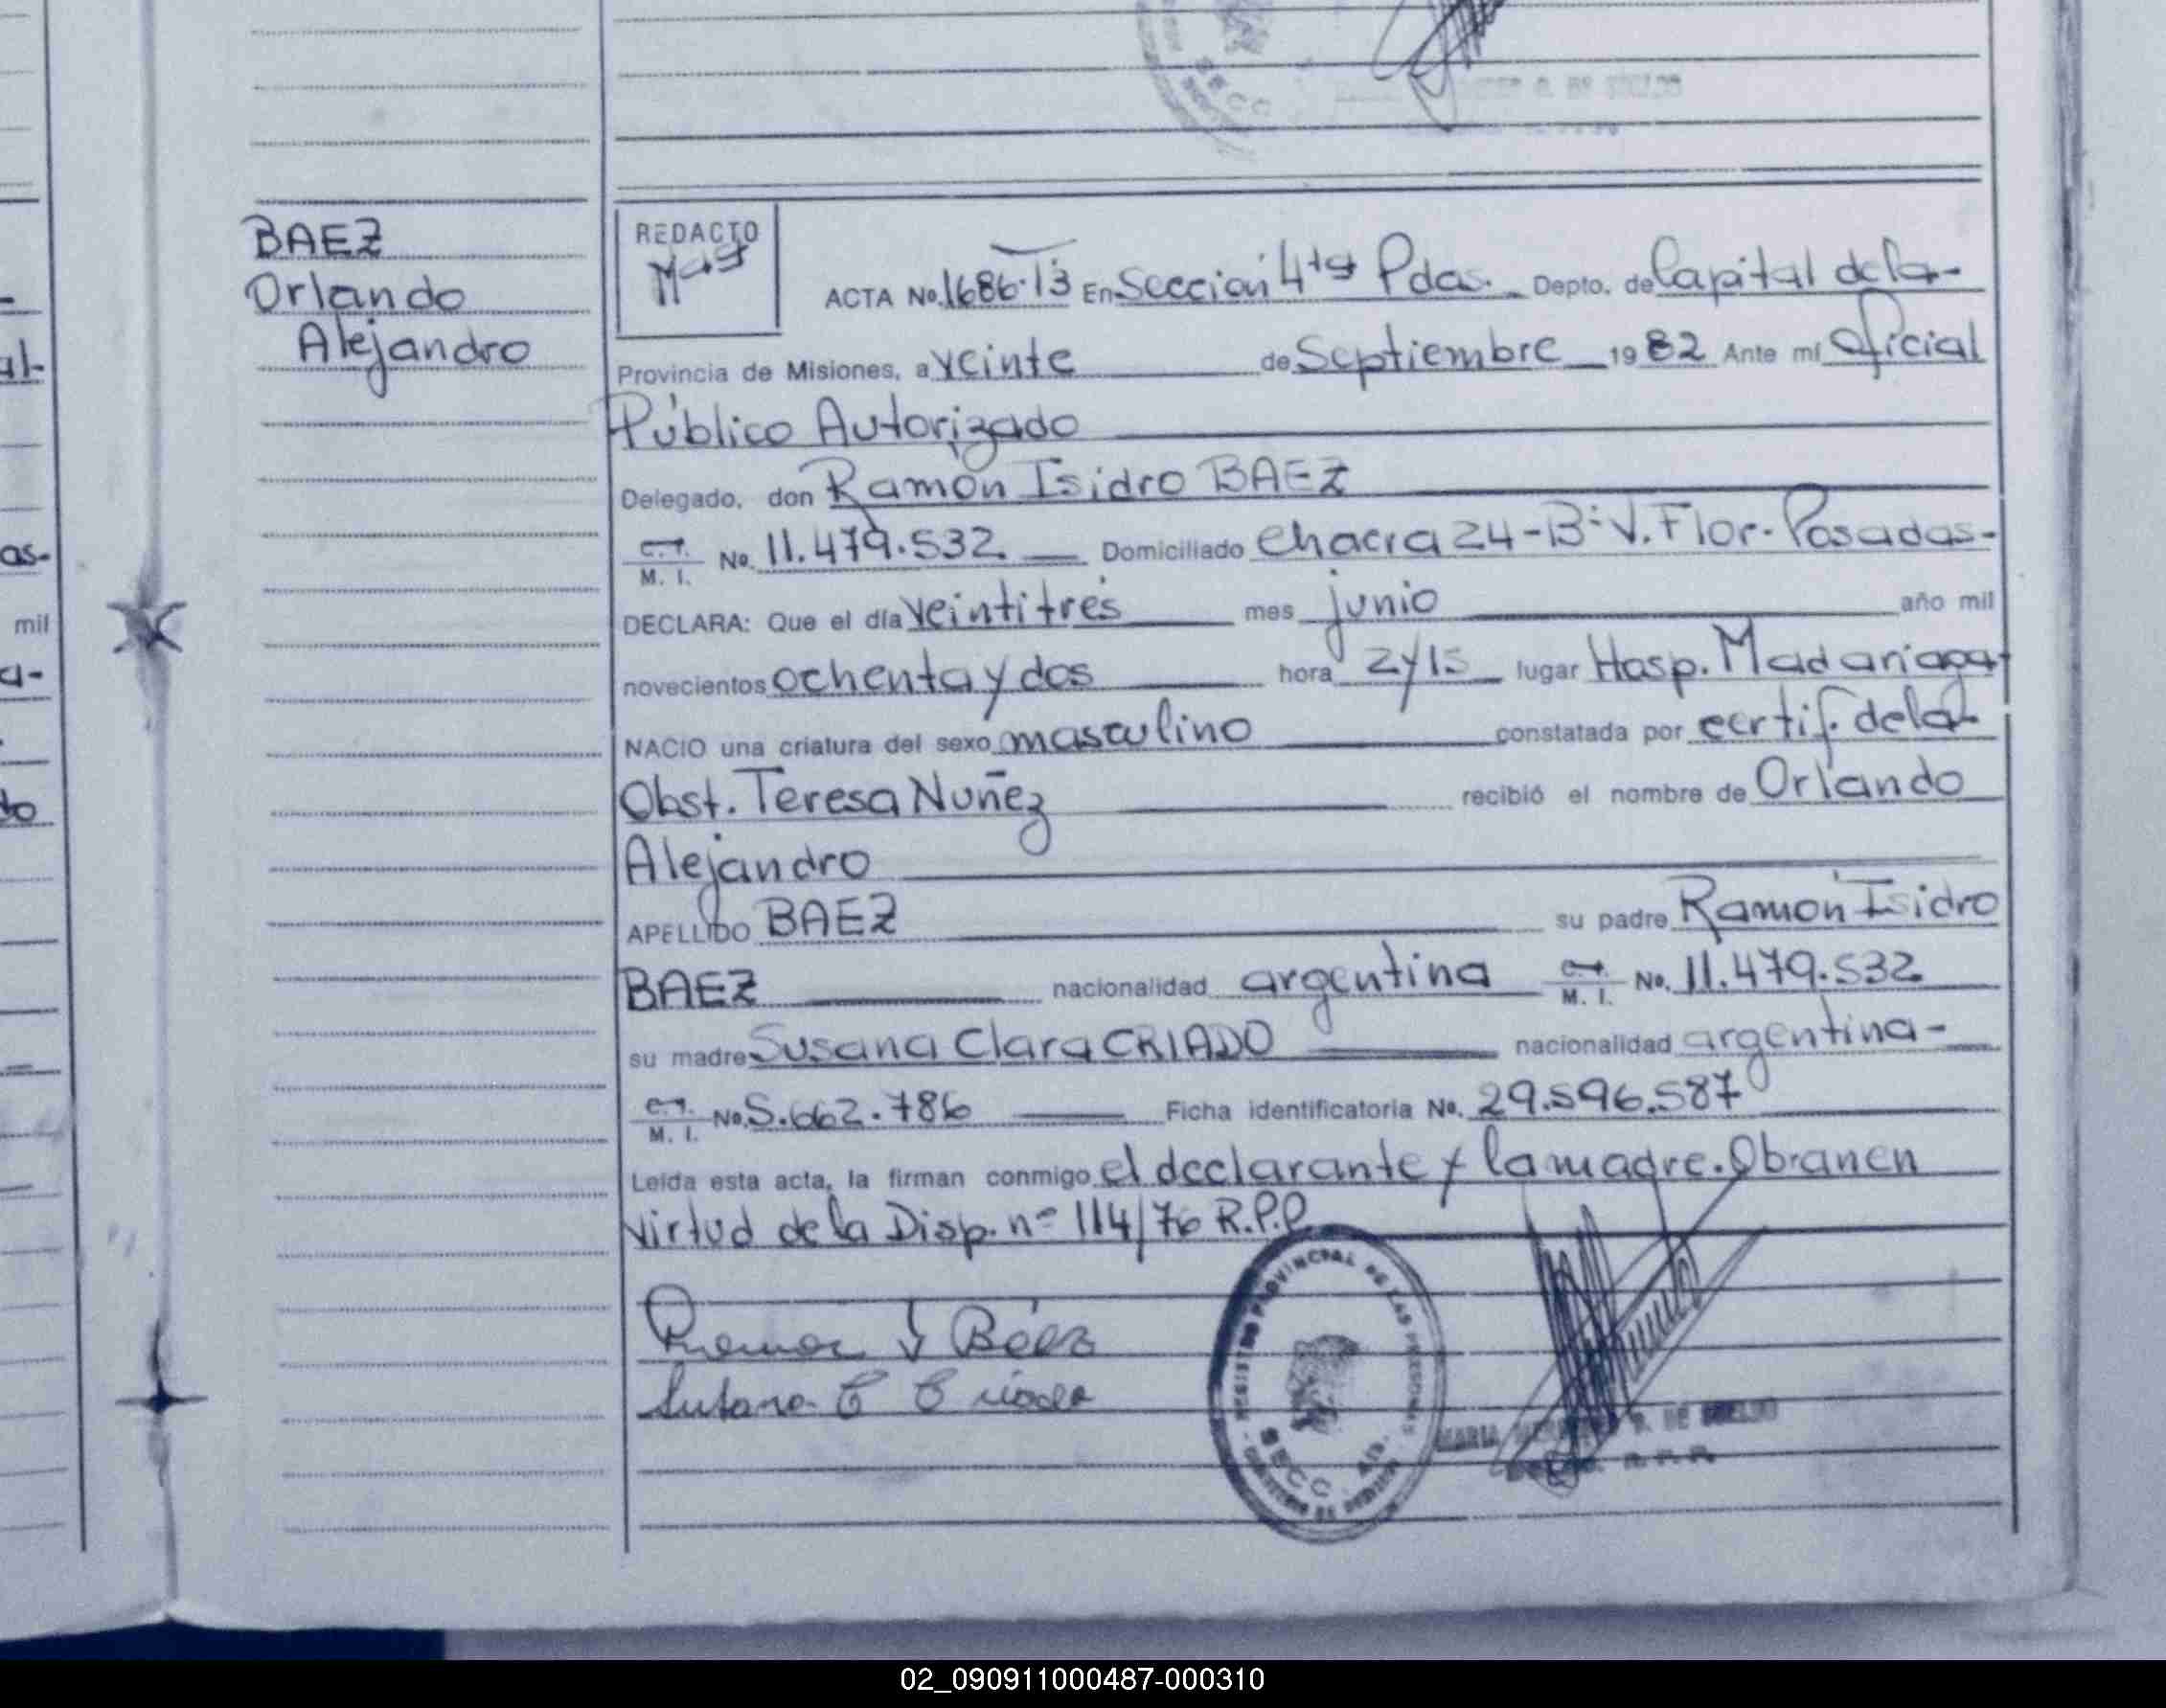 BAEZ
Orlando
Alejandro
REDACTO
ACTA No. 1686·T̄3 En Sección 4ta Pdas. Depto. de Capital de la-
Provincia de Misiones, a veinte de Septiembre 1982 Ante mí Oficial
Público Autorizado
Delegado, don Ramón Isidro BAEZ
C.I. M. I. No. 11.479.532 Domiciliado Chacra 24-Bº V. Flor. Posadas-
DECLARA: Que el día veintitrés mes junio año mil
novecientos ochenta y dos hora 2y15 lugar Hosp. Madariaga-
NACIO una criatura del sexo masculino constatada por certif. de la
Obst. Teresa Nuñez recibió el nombre de Orlando
Alejandro
APELLIDO BAEZ su padre Ramón Isidro
BAEZ nacionalidad argentina C.I. M. I. No. 11.479.532
su madre Susana Clara CRIADO nacionalidad argentina-
C.I. M. I. No. 5.662.786 Ficha identificatoria No. 29.596.587
Leída esta acta, la firman conmigo el declarante y la madre. Obran en
virtud de la Disp. nº 114/76 R.P.P
REGISTRO PROVINCIAL DE LAS PERSONAS
SECC. 4ta.
Ramon I Báez
Susana C Criado
MARIA R. DE
R. P. P.
mil
as-
02_090911000487-000310